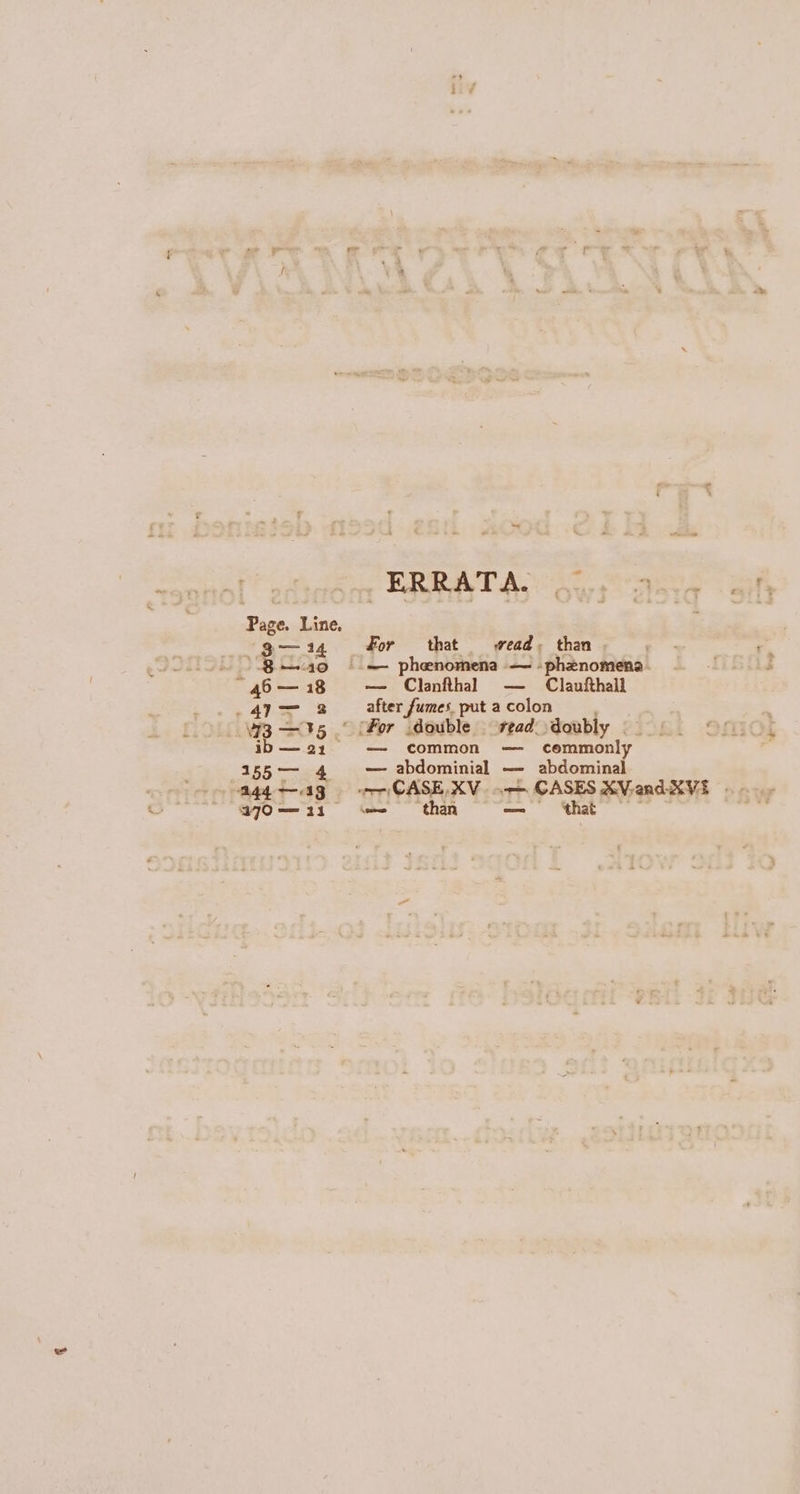 ERRATA.
Page. Line.
3 — 14 For that read, than
8 — 10 — phœnomena — phænomena
46 — 18 — Clanſthal — Clauſthall
47 — 2 after fumes put a colon
73 — 15 For double read doubly
ib — 21 — common — commonly
155 — 4 — abdominial — abdominal
244 — 19 — CASE XV — CASES XV and XVI
270 — 11 — than — that